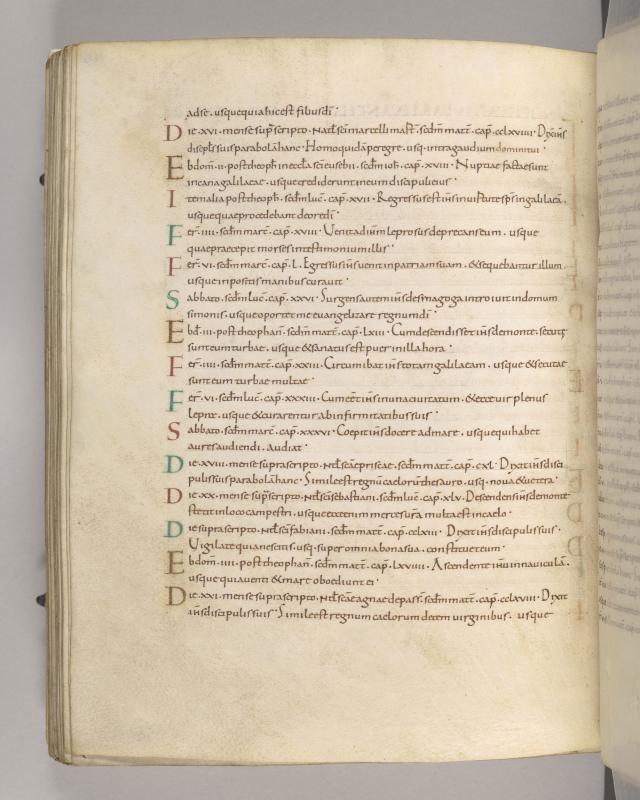 ad se . usque quia hic est fib; usdī
Die . xvi . mense sup̄ scripto . Natł scī marcelli mart̄ . sedm̄ matt̄ . cap̄ . cclxxviii . Dixit ih̄s
discipl̄s suis parabolā hanc . Homo quidā peregre . usq . intra gaudium domini tui .
Ebdom̄ . ii . post theoph̄ . in eccła scī eusebii . sedm̄ ioh̄ . cap̄ . xviii . Nuptiae factae sunt
in cana galilaeae . usque crediderunt in eum discipuli eius .
Item alia post theoph̄ . sedm̄ luc̄ . cap̄ . xvii . Regressus est ih̄s in virtute sp̄s in galilaeā .
usque quae procedebant de ore dī .
Fer̄ . iiii . sedm̄ marc̄ . cap̄ . xviii . Venit ad iħm leprosus deprecans eum . usque
quae praecepit moses in testimonium illis .
Fer̄ . vi . sedm̄ marc̄ . cap̄ . l . Egressus ih̄s venit in patriam suam . & sequebantur illum
usque inpositis manibus curavit .
Sabbato . sedm̄ luc̄ . cap̄ . xxvi . Surgens autem ih̄s de synagoga introivit in domum
simonis . usque oportet me evangelizare regnum dī .
Ebd̄ . iii . post theophan̄ . sedm̄ matt̄ . cap̄ . lxiii . Cum descendisset ih̄s de monte . secutę
sunt eum turbae . usque & sanatus est puer in illa hora .
Fer̄ . iiii . sedm̄ matt̄ . cap̄ . xxiii . Circumibat ih̄s totam galilaeam . usque & secutae
sunt eum turbae multae .
Fer̄ . vi . sedm̄ luc̄ . cap̄ . xxxiii . Cum e&̄ ih̄s in una civitatum . & ecce vir plenus
lepra . usque & curarentur ab infirmitatibus suis .
Sabbato . sedm̄ marc̄ . cap̄ . xxxvi . Coepit ih̄s docere ad mare . usque qui habet
aures audiendi . audiat .
Die . xviii . mense suprascripto . Natł scāe priscae . sedm̄ matt̄ . cap̄ . cxl . Dixit ih̄s disci
pulis suis parabolā hanc . Simile est regnū caelorū thesauro . usq . nova & vetera .
Die . xx . mense sup̄ scripto . Natł scī sebastiani . sedm̄ luc̄ . cap̄ . xlv . Descendens ih̄s de monte
stetit in loco campestri . usque ecce enim merces vr̄a multa est in caelo .
Die suprascripto . Natł scī fabiani . sedm̄ matt̄ . cap̄ . cclxiii . Dixit ih̄s discipulis suis .
Vigilate quia nescitis . usq . super omnia bona sua . constituet eum .
Ebdom̄ . iiii . post theophan̄ . sedm̄ matt̄ . cap̄ . lxviiii . Ascendente iħu in naviculā .
usque quia venti & mare oboediunt ei .
Die . xxi . mense suprascripto . Natł scāe agnae de pass̄ . sedm̄ matt̄ . cap̄ . cclxviii . Dixit
ih̄s discipulis suis . Simile est regnum caelorum decem virginibus . usque